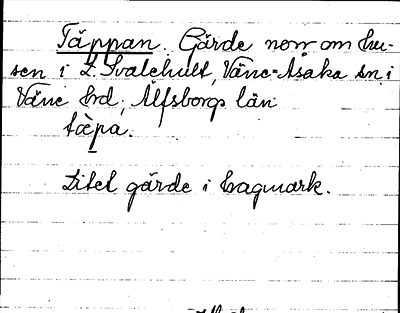 Täppan. Gärde norr om hu-
sen i L. Svalehult, Väne-Åsaka sn i
Väne hrd, Älfsborgs län
tæ̀pa.
Litet gärde i hagmark.